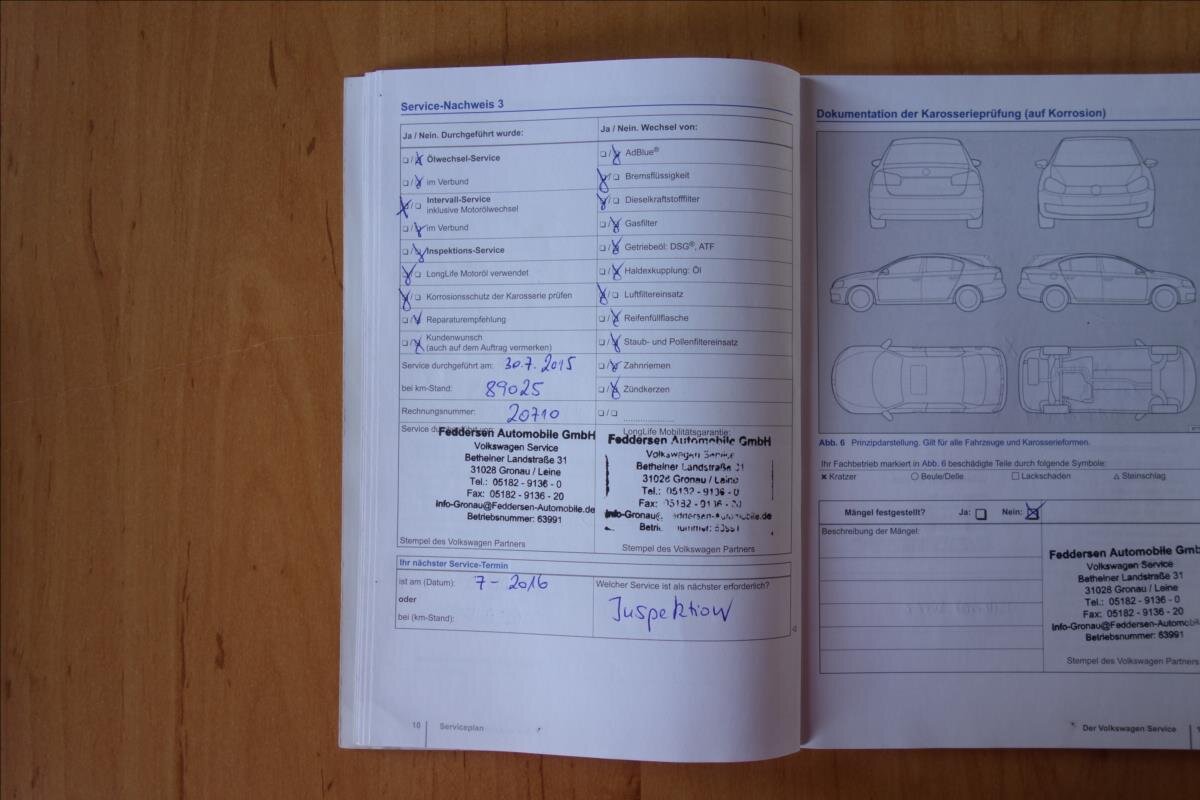 Service-Nachweis 3
Ja / Nein. Durchgeführt wurde:
Ölwechsel-Service
im Verbund
Intervall-Service
inklusive Motorölwechsel
im Verbund
Inspektions-Service
LongLife Motoröl verwendet
Korrosionsschutz der Karosserie prüfen
Reparaturempfehlung
Kundenwunsch
(auch auf dem Auftrag vermerken)
Service durchgeführt am: 30.7.2015
bei km-Stand: 89025
Rechnungsnummer: 20710
Ja / Nein. Wechsel von:
AdBlue®
Bremsflüssigkeit
Dieselkraftstofffilter
Gasfilter
Getriebeöl: DSG®, ATF
Haldexkupplung: Öl
Luftfiltereinsatz
Reifenfüllflasche
Staub- und Pollenfiltereinsatz
Zahnriemen
Zündkerzen
Service
Feddersen Automobile GmbH
Volkswagen Service
Betheiner Landstraße 31
31028 Gronau / Leine
Tel.: 05182 - 9136 - 0
Fax: 05182 - 9136 - 20
Info-Gronau@Feddersen-Automobile.de
Betriebsnummer: 63991
Stempel des Volkswagen Partners
LongLife Mobilitätsgarantie:
Feddersen Automobile GmbH
Volkswagen Service
Betheiner Landstraße 31
31028 Gronau / Leine
Tel.: 05182 - 9136 - 0
Fax: 05182 - 9136 - 20
Stempel des Volkswagen Partners
Ihr nächster Service-Termin
ist am (Datum): 7 - 2016
oder
bei (km-Stand):
Welcher Service ist als nächster erforderlich?
Inspektion
10 Serviceplan
Dokumentation der Karosserieprüfung (auf Korrosion)
Abb. 6 Prinzipdarstellung. Gilt für alle Fahrzeuge und Karosserieformen.
Ihr Fachbetrieb markiert in Abb. 6 beschädigte Teile durch folgende Symbole:
Kratzer Beule/Delle Lackschaden Steinschlag
Mängel festgestellt? Ja: Nein:
Beschreibung der Mängel:
Feddersen Automobile GmbH
Volkswagen Service
Betheiner Landstraße 31
31028 Gronau / Leine
Tel.: 05182 - 9136 - 0
Fax: 05182 - 9136 - 20
Info-Gronau@Feddersen-Automobile.
Betriebsnummer: 63991
Stempel des Volkswagen Partners
Der Volkswagen Service